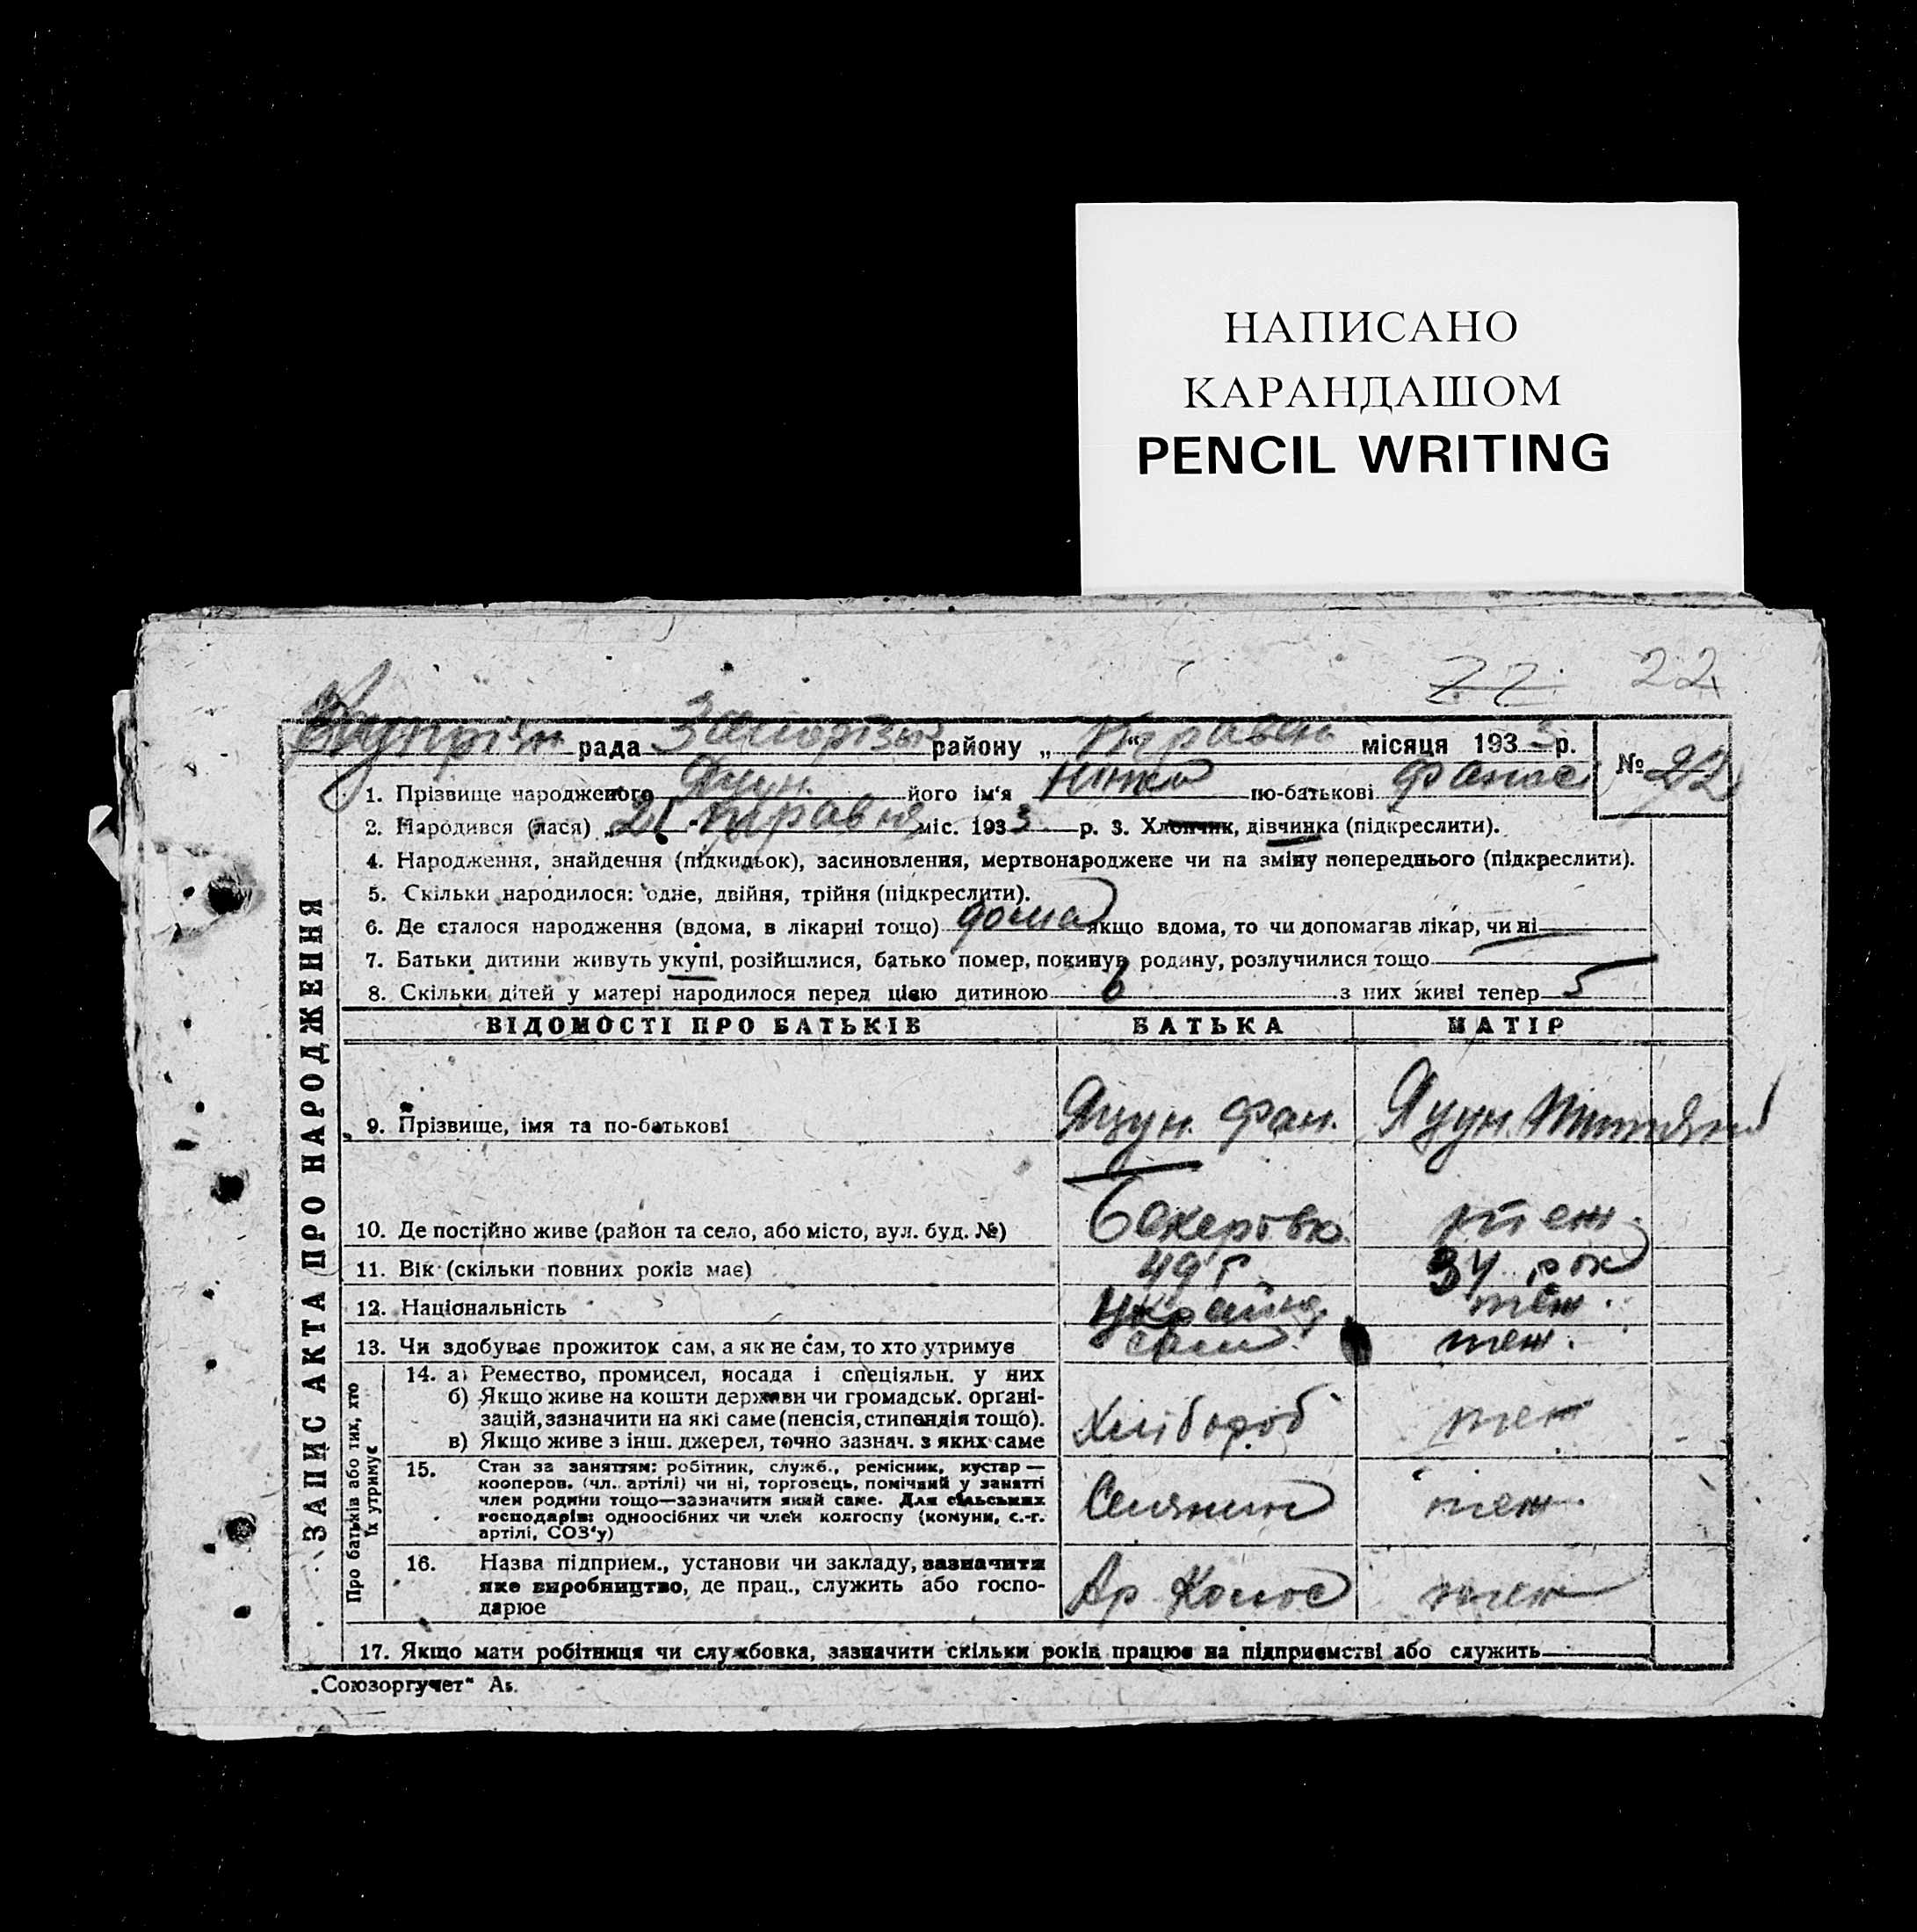 НАПИСАНО
КАРАНДАШОМ
PENCIL WRITING
22 22
рада Запорізьк району „ “ Травень місяця 1933 р.
№ 22
1. Прізвище народженого Яцун його ім‘я по-батькові
2. Народився (лася) „21 “ травня міс. 1933 р. 3. Хлопчик, дівчинка (підкреслити).
4. Народження, знайдення (підкидьок), засиновлення, мертвонароджене чи на зміну попереднього (підкреслити).
5. Скільки народилося: одне, двійня, трійня (підкреслити).
6. Де сталося народження (вдома, в лікарні тощо) дома якщо вдома, то чи допомагав лікар, чи ні
7. Батьки дитини живуть укупі, розійшлися, батько помер, покинув родину, розлучилися тощо
8. Скільки дітей у матері народилося перед цією дитиною 6 з них живі тепер 5
ЗАПИС АКТА ПРО НАРОДЖЕННЯ
ВІДОМОСТІ ПРО БАТЬКІВ БАТЬКА МАТІР
9. Прізвище, імя та по-батькові Яцун. Фан. Яцун.
10. Де постійно живе (район та село, або місто, вул. буд. №) теж.
11. Вік (скільки повних років має) 49 г 34 рок
12. Національність Україн. теж.
13. Чи здобуває прожиток сам, а як не сам, то хто утримує сам. теж.
Про батьків або тих, хто
їх утримує
14. а) Ремество, промисел, посада і спеціяльн. у них
б) Якщо живе на кошти держави чи громадськ. орґані-
зацій, зазначити на які саме (пенсія, стипендія тощо).
в) Якщо живе з інш. джерел, точно зазнач. з яких саме
Хлібороб теж
15. Стан за заняттям: робітник, служб., ремісник, кустар —
кооперов. (чл. артілі) чи ні, торговець, помічний у занятті
член родини тощо—зазначити який саме. Для сільських
господарів: одноосібних чи член колгоспу (комуни, с.-г.
артілі, СОЗ‘у)
Селянин теж.
16. Назва підприєм., установи чи закладу, зазначити
яке виробництво, де прац., служить або госпо-
дарює
Ар Колос теж
17. Якщо мати робітниця чи службовка, зазначити скільки років працює на підприємстві або служить
„Союзоргучет“ А5.